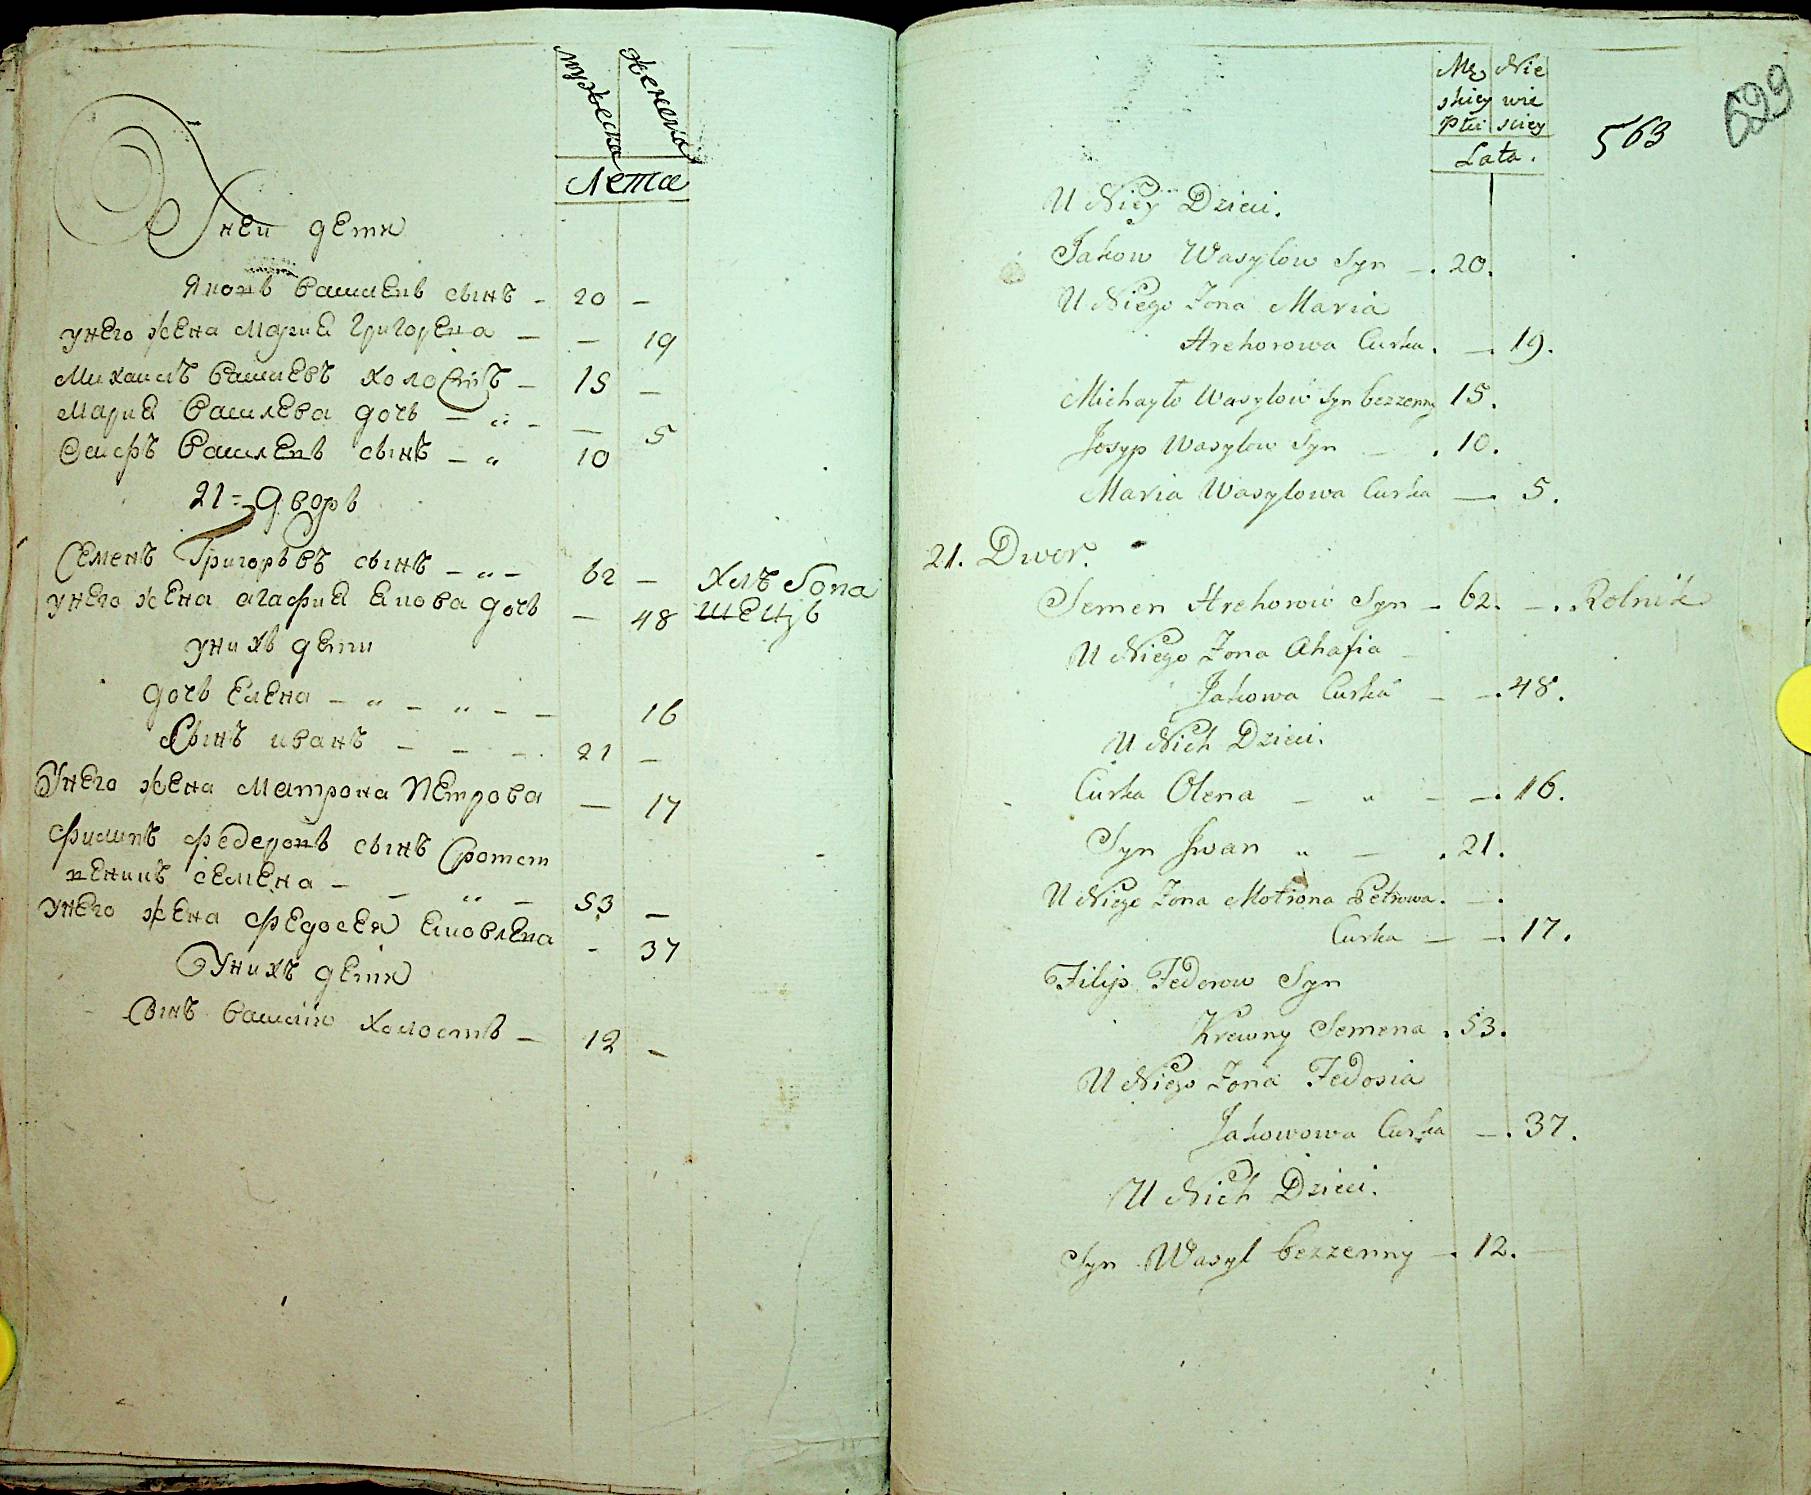 мужеска
женска
лета
У неи дети
Яковъ Василевъ сынъ – 20 –
у него жена Мариа Григорева – – 19
Михаилъ Василевъ холостъ – 15 –
Мариа Василева дочь – „ – – 5
Осифъ Василевъ сынъ – „ 10
21 = Дворъ
Семенъ Григорьевъ сынъ – „ – 62 – Хлѣбопа
у него жена Агафиа Якова дочь – 48 шецъ
у нихъ дети
дочь Елена – „ – „ – – 16
Сынъ Иванъ – – – 21 –
У него жена Матрона Петрова – 17
Филипъ Федоровъ сынъ Сротст
венникъ Семена – – „ – 53 –
у него жена Федосея Яковлева – 37
У нихъ дети
Сынъ Василий Холостъ – 12 –
Mę Nie
skiey wie
Płci sciey
Lata.
563
699
U Niey Dzieci.
Jakow Wasylow Syn – . 20.
U Niego Zona Maria
Hrehorowa Curka . – . 19.
Michayło Wasylow Syn bezzenny 15.
Josyp Wasylow Syn – . 10.
Maria Wasylowa Curka – . 5.
21. Dwor.
Semen Hrehorow Syn – 62. – . Rolnik
U Niego Zona Ahafia –
Jakowa Curka – – . 48.
U Nich Dzieci.
Curka Olena – „ – – . 16.
Syn Iwan „ – . 21.
U Niego Zona Motrona Petrowa . – .
Curka – – . 17.
Filip Fedorow Syn
Krewny Semena . 53.
U Niego Zona Fedosia
Jakowowa Curka – . 37.
U Nich Dzieci.
Syn Wasyl bezzenny – . 12. –